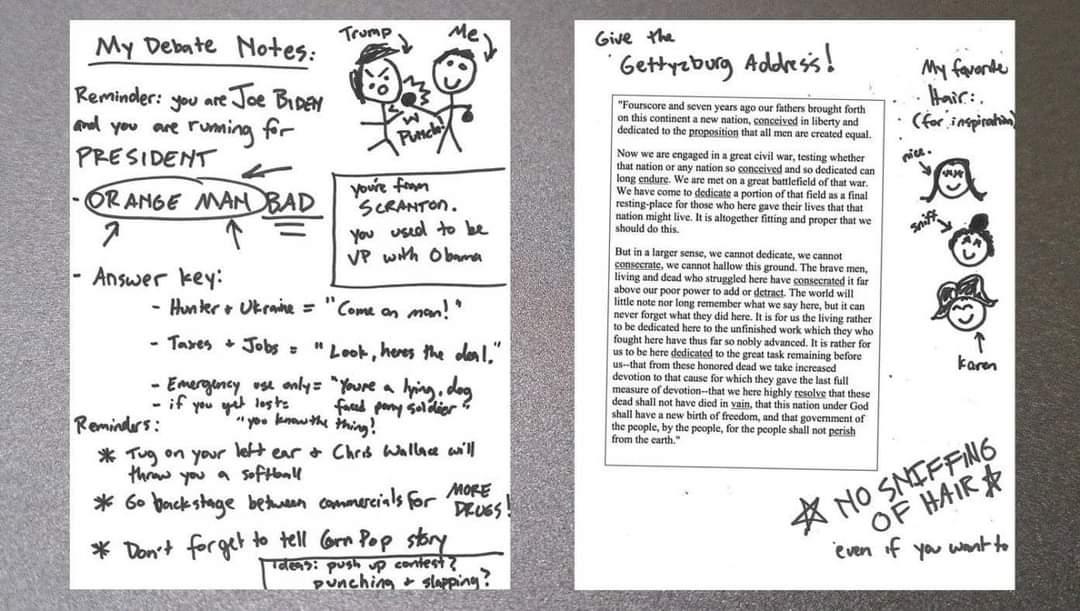 My Debate Notes:
Trump
Me
Punch
Reminder: you are Joe BIDEN
and you are running for
PRESIDENT
- ORANGE MAN BAD
you're from
SCRANTON.
you used to be
VP with Obama
- Answer key:
- Hunter + Ukraine = "Come on man!"
- Taxes + Jobs = "Look, heres the deal."
- Emergency use only = "Youre a lying, dog
faced pony soldier"
- if you get lost =
"you know the thing!
Reminders:
* Tug on your left ear + Chris Wallace will
throw you a softball
* Go backstage between commercials for MORE
DRUGS!
* Don't forget to tell Corn Pop story
Ideas: push up contest?
punching + slapping?
Give the
Gettyzburg Address!
"Fourscore and seven years ago our fathers brought forth
on this continent a new nation, conceived in liberty and
dedicated to the proposition that all men are created equal.
Now we are engaged in a great civil war, testing whether
that nation or any nation so conceived and so dedicated can
long endure. We are met on a great battlefield of that war.
We have come to dedicate a portion of that field as a final
resting-place for those who here gave their lives that that
nation might live. It is altogether fitting and proper that we
should do this.
But in a larger sense, we cannot dedicate, we cannot
consecrate, we cannot hallow this ground. The brave men,
living and dead who struggled here have consecrated it far
above our poor power to add or detract. The world will
little note nor long remember what we say here, but it can
never forget what they did here. It is for us the living rather
to be dedicated here to the unfinished work which they who
fought here have thus far so nobly advanced. It is rather for
us to be here dedicated to the great task remaining before
us--that from these honored dead we take increased
devotion to that cause for which they gave the last full
measure of devotion--that we here highly resolve that these
dead shall not have died in vain, that this nation under God
shall have a new birth of freedom, and that government of
the people, by the people, for the people shall not perish
from the earth."
My favorite
Hair:
(for inspiration)
nice.
sniff
Karen
NO SNIFFING
OF HAIR
even if you want to